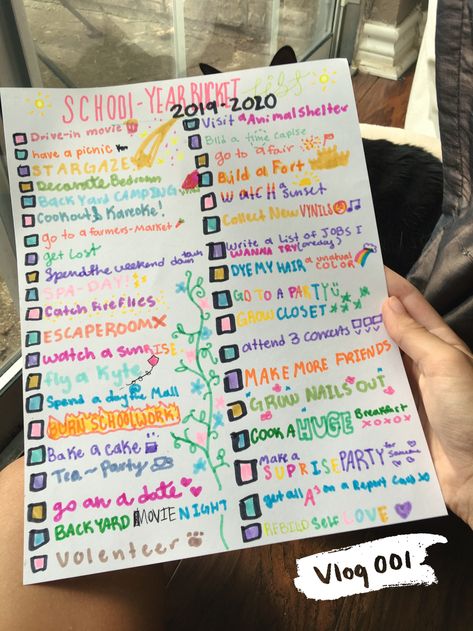 SCHOOL-YEAR BUCKET LIST
2019-2020
Drive-in movie
have a picnic
STARGAZE
Decorate Bedroom
BACKYARD CAMPING
Cookout & Kareoke!
go to a farmers-market
get Lost
Spend the weekend down town
SPA-DAY!
Catch fireflies
ESCAPEROOM
watch a sunRISE
fly a Kyte
Spend a day @ the Mall
BURN SCHOOLWORK
Bake a cake
Tea~Party
go on a date
BACKYARD MOVIE NIGHT
Volenteer
Visit a Animal shelter
Bild a time caplse
go to a fair
Build a Fort
WATCH a sunset
Collect New VYNILS
Write a List of JOBS I
WANNA TRY (one day)
DYE MY HAIR a unatual COLOR
GO TO A PARTY
GROW CLOSET
attend 3 concerts
MAKE MORE FRIENDS
GROW NAILS OUT
COOK A HUGE Breakfast
XOXOXO
Make a SUPRISE PARTY for someone
get all A's on a Report Card
REBILD Self LOVE
Vlog 001